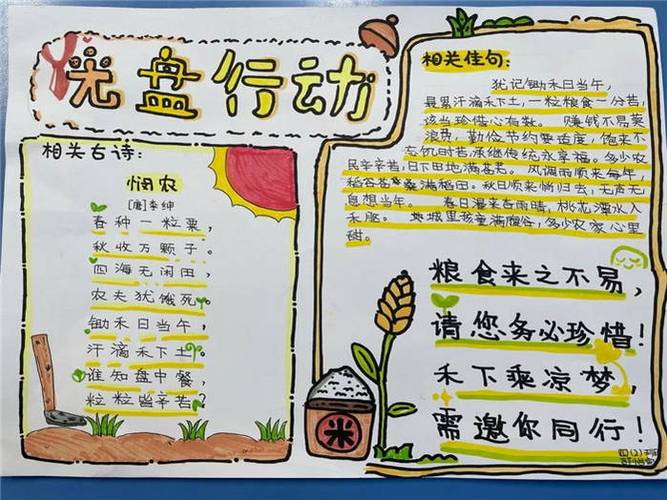 光盘行动
相关古诗:
悯农
[唐]李绅
春种一粒粟,
秋收万颗子。
四海无闲田,
农夫犹饿死。
锄禾日当午,
汗滴禾下土。
谁知盘中餐,
粒粒皆辛苦?
米
相关佳句:
犹记锄禾日当午,
最累汗滴禾下土,一粒粮食一分苦,
该当珍惜心有数。 赚钱不易莫
浪费,勤俭节约要适度,饱来不
忘饥时苦,承继传统永享福。多少农
民辛辛苦,日下田地满苍芜。风调雨顺来每年,
稻谷苍苍满稻田。秋日顺来悄归去,无声无
息想当年。 春日漫来杏雨晴,桃花潭水入
禾胞。 城里孩童满腹谷,多少农家心里
甜。
粮食来之不易,
请您务必珍惜!
禾下乘凉梦,
需邀你同行!